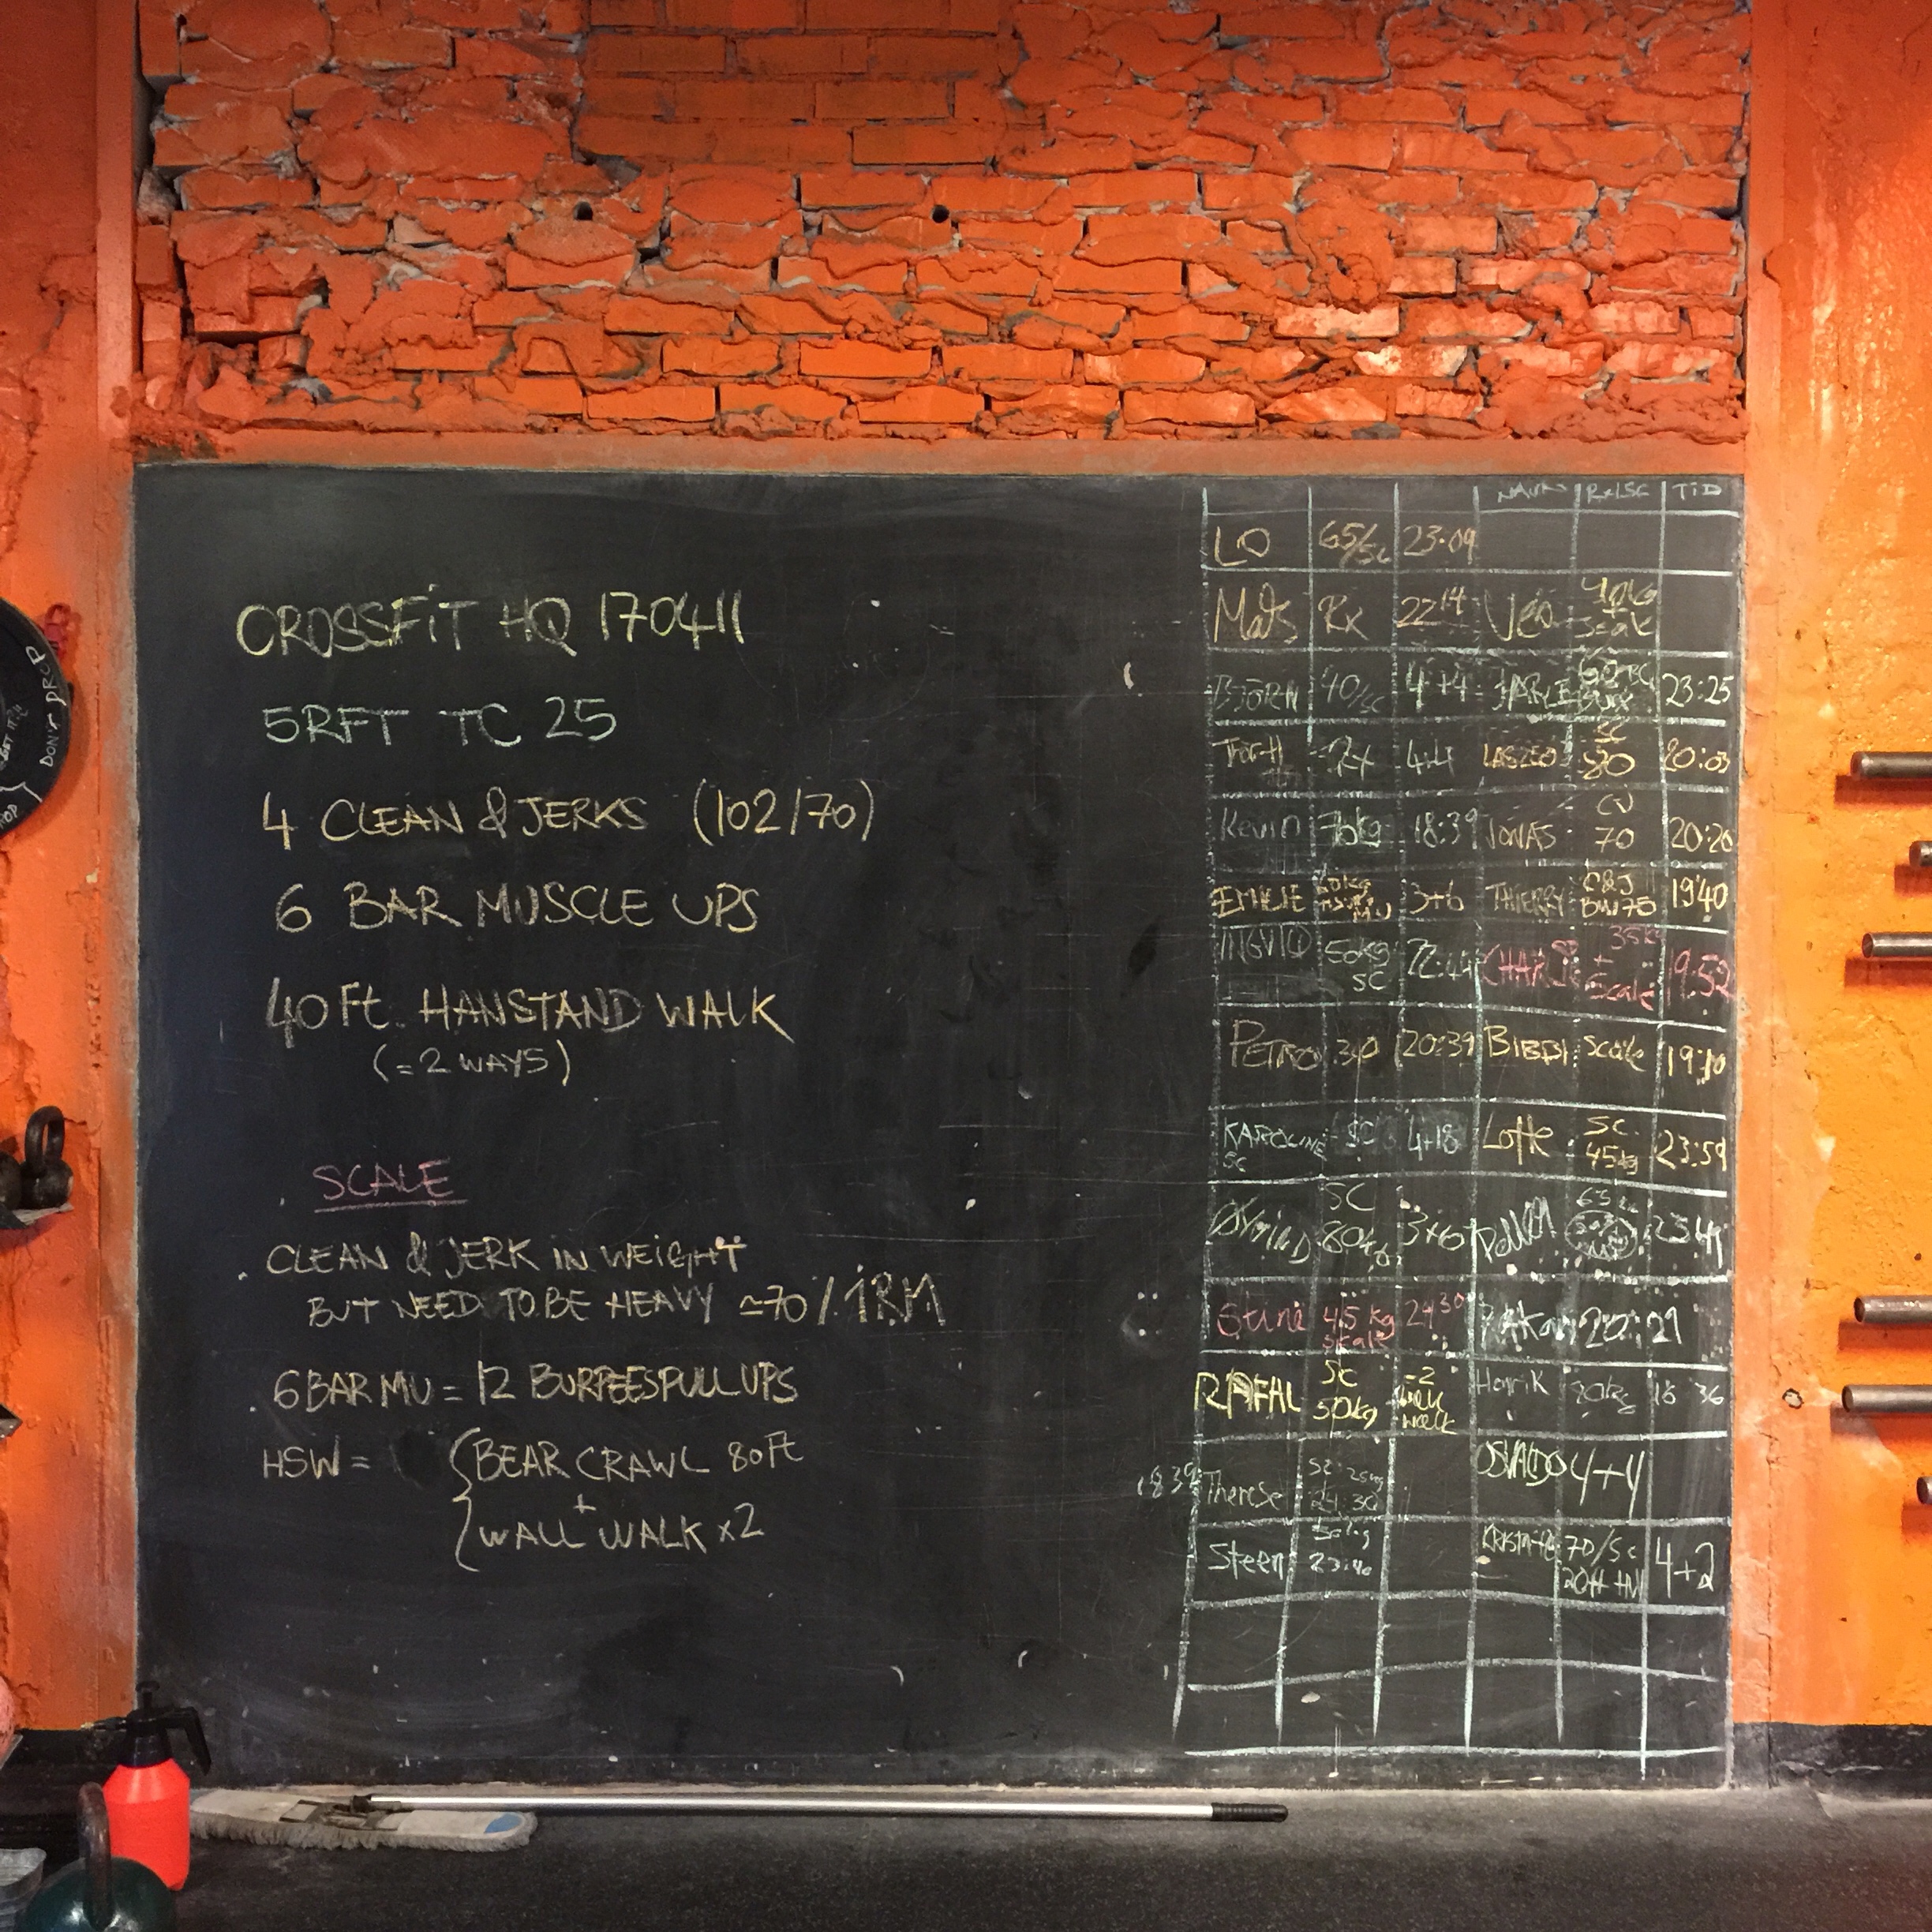 CROSSFiT HQ 170411
5RFT TC 25
4 CLEAN & JERKS (102/70)
6 BAR MUSCLE UPS
40 Ft. HANSTAND WALK
(=2 WAYS)
SCALE
CLEAN & JERK IN WEIGHT
BUT NEED TO BE HEAVY ≃70% 1RM
6 BAR MU = 12 BURPEES PULL UPS
HSW = { BEAR CRAWL 80Ft
+
WALL WALK x2
NAVN Rx/SC TiD
LO 65/SC 23:09
Mats Rx 22 14 Veo 40kg scale
BJÖRN 40/SC 4+4 23:25
4+4 LASZLO SC 80 20:03
Kevin 70kg 18:39 JONAS 70 20:20
EMILIE 3+6 THIERRY C&J 75 19'40
INGVILD 50kg SC 22:44 35k + Scale 19:52
PETRO 20:39 BIBBI Scale 19:10
KAROLINE SC SC 4+18 Lotte SC 45kg 23:59
ØYVIND SC 80kg 3+6
Stine 45 kg scale 24 30 20:21
RAFAL SC 50kg -2 wall walk Henrik 80kg 18 36
18:39 Therese 24:30 OSVALDO 4+4
Steen 23:40 70/Sc 4+2
DON'T DROP